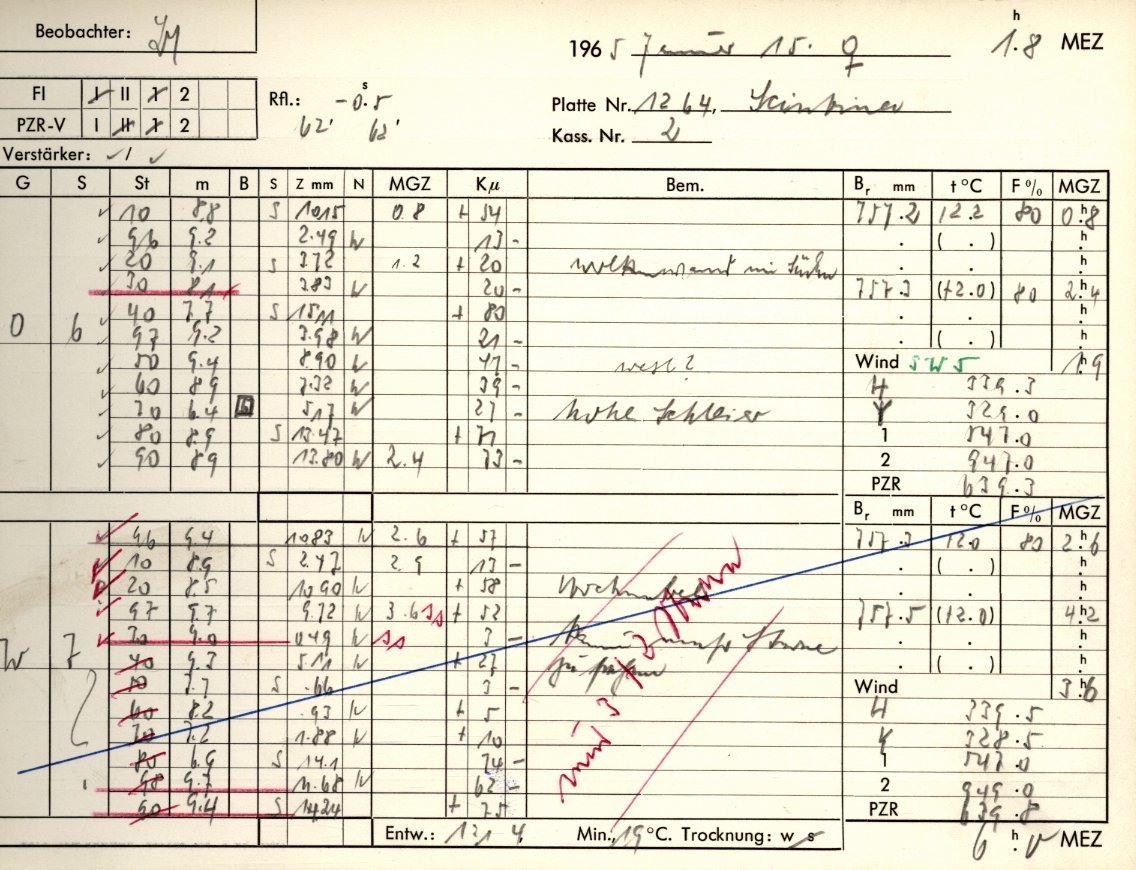 Beobachter:
1965 Januar 15. ♀ 1.8 h MEZ
FI I II 1 2
PZR-V I II 1 2
Rfl.: -0.5 s
62' 62'
Platte Nr. 1264,
Kass. Nr. 2
Verstärker: ✓ / ✓
G S St m B S Z mm N MGZ Kμ Bem.
✓ 10 8.8 S 10.15 0.8 + 54
✓ 96 9.2 2.49 W 13 -
✓ 20 9.1 S 3.72 1.2 + 20
30 8.1 3.83 W 20 -
0 6 ✓ 40 7.7 S 15.11 + 80
✓ 97 9.2 3.98 W 21 -
✓ 50 9.4 8.90 W 47 - west?
✓ 60 8.9 7.32 W 39 -
✓ 70 6.4 5.17 W 27 - hohe Schleier
✓ 80 8.9 S 13.47 + 71
✓ 90 8.9 13.80 W 2.4 73 -
96 9.4 10.83 W 2.6 + 57
10 8.9 S 2.47 2.9 13 -
20 8.5 10.90 W + 58
97 9.7 9.72 W 3.6 + 52
30 9.0 0.49 W 3 -
W 7 40 9.3 5.11 W + 27
50 7.7 S .66 3 -
60 8.2 .93 W + 5
70 7.2 1.88 W + 10
80 6.9 S 14.1 74 -
98 9.7 11.68 W 62 -
90 9.4 S 14.24 + 75
Br mm t °C F % MGZ
757.2 12.2 80 0.8 h
. ( . ) . h
. . h
757.3 (12.0) 80 2.4 h
. . h
. ( . ) . h
Wind SW 5 1.9 h
339.3
329.0
1 547.0
2 947.0
PZR 639.3
Br mm t °C F % MGZ
757.3 12.0 80 2.6 h
. ( . ) . h
. . h
757.5 (12.0) 4.2 h
. . h
. ( . ) . h
Wind 3.6 h
339.5
328.5
1 547.0
2 949.0
PZR 639.8
nur 3 + 2 Sterne
Entw.: Min., 19 °C. Trocknung: w s
6 h .0 MEZ